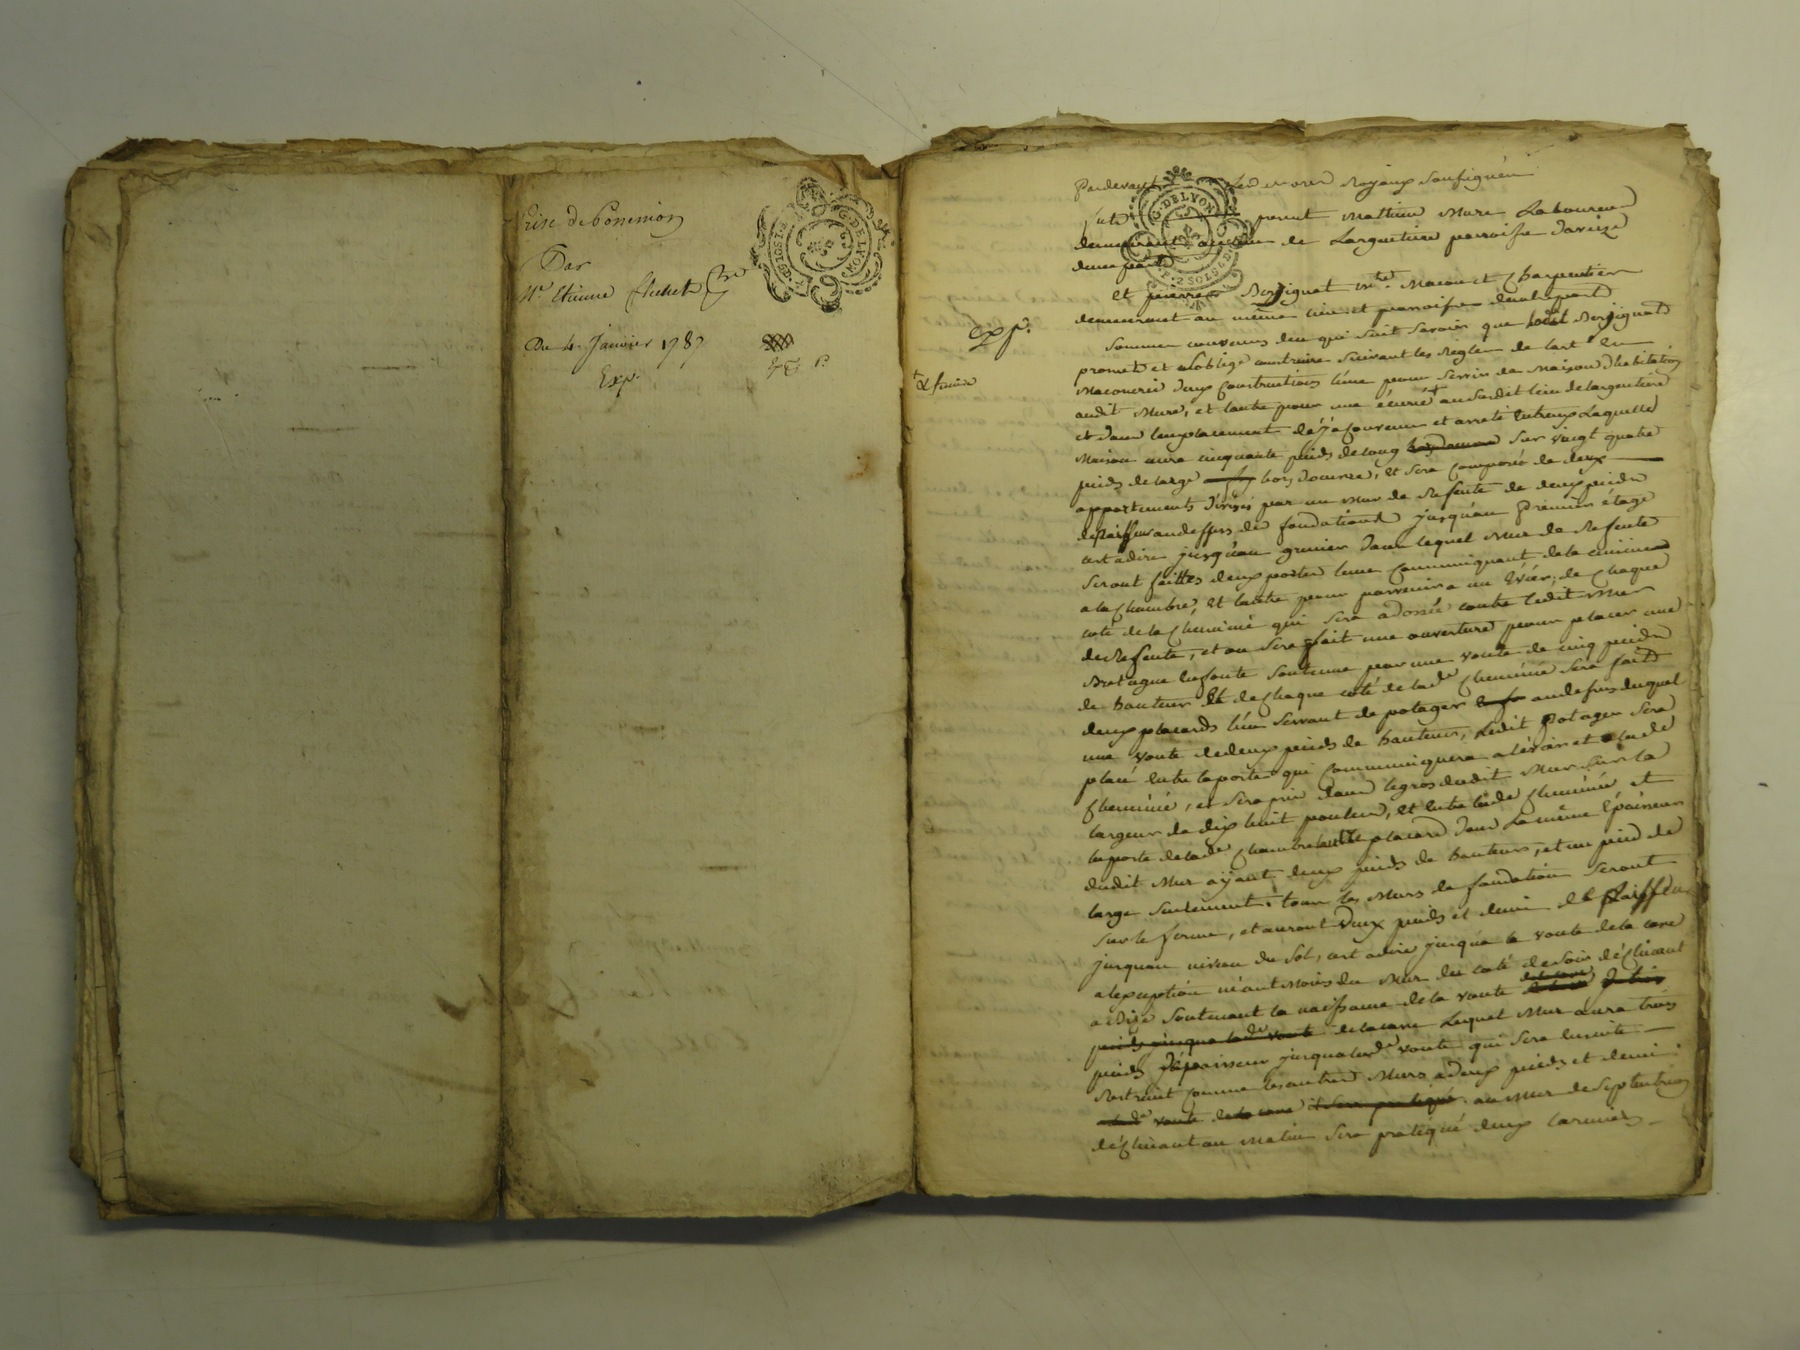 Prise de possession
Par
Me. Etienne
Du 4 Janvier 1787
Exp.
G. DE LYON
G. DE LYON
2 SOLS 6 D
Exp.
& feniere
Pardevant Les no res Royaux Soussignés
fut present Mathieu Mure Laboureur
demeurant au lieu de Largentiere parroisse Daveize
dune part
Et pierre me. Macon et Charpentier
demeurant au même lieu et parroisse dautre part
Sommes convenus de ce qui suit savoir que ledit
promet et soblige construire suivant les Regles de lart En
Maconerie deux Constructions L'une pour servir de Maison Dhabitation
audit Mure, et lautre pour une écurie + au susdit lieu de largentiere
et dans lemplacement déja Convenus et arreté Entreux Laquelle
Maison aura cinquante pieds de long sur vingt quatre
pieds de large hors doeuvre, et sera Composée de deux
appartements divisés par un mur de Refente de deux pieds
depaisseur audessus des fondations jusqu'au premier étage
cest adire jusqu'au grenier dans lequel Mur de Refente
seront faittes deux portes lune Communiquant de la cuisine
a la Chambre, Et lautre pour parvenir a un Evier, de Chaque
coté de la Cheminé qui sera adossée contre ledit Mur
de Refente, et ou sera fait une ouverture pour placer une
Bretagne En fonte soutenue par une voute de cinq pieds
de hauteur Et de Chaque coté de lade Cheminée sera fait
deux placards l'un servant de potager audessus duquel
une voute de deux pieds de hauteur, Ledit potager sera
placé Entre la porte qui Communiquera a lévier et lade
Cheminé, et sera pris dans le gros dudit Mur sur la
largeur de dix huit pouces, Et Entre lade Cheminé, et
la porte de lade Chambre placard dans La même Epaisseur
dudit Mur ayant deux pieds de hauteur, et un pied de
large seulement. tous les Murs de fondation seront
sur le ferme, et auront deux pieds et demi de
jusquau niveau du sol, cest adire jusqua la voute de la cave
alexception néantmoins du Mur du coté de soir déclinant
a Bize soutenant la naissance de la voute
pieds jusqua lade voute de la cave Lequel Mur aura trois
pieds d'épaisseur jusqua lade voute qui sera Ensuite
Restraint Comme les autres Murs a deux pieds et demi
lade voute de la cave il sera pratiqué au Mur de Septentrion
déclinant au Matin sera pratiqué deux larmiers